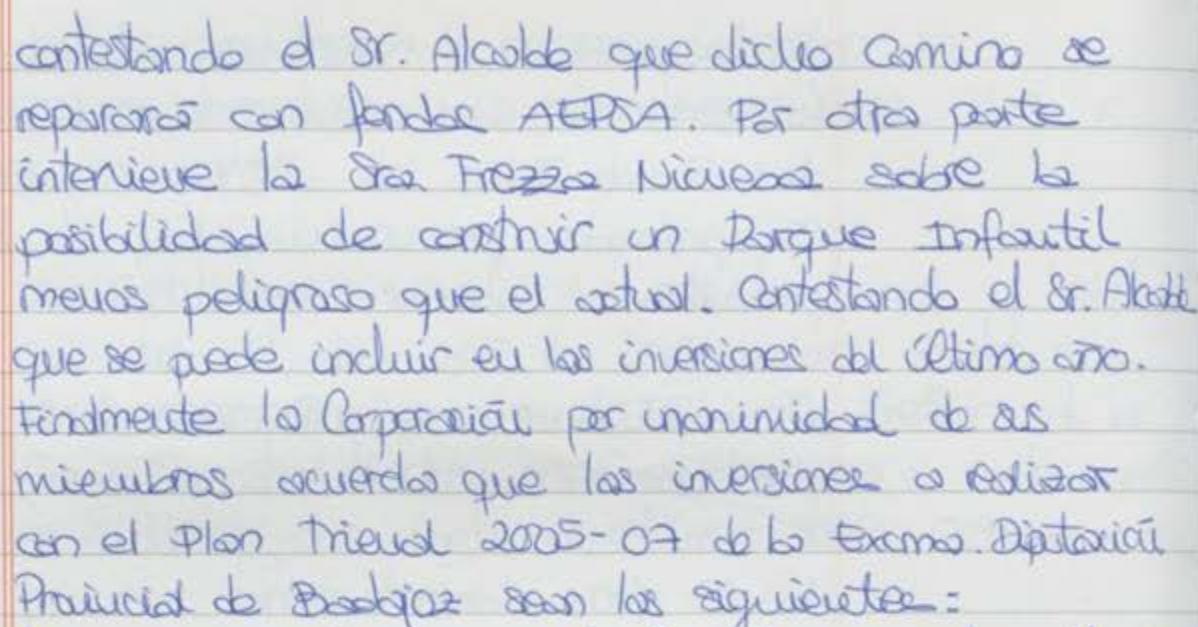 contestando el Sr. Alcalde que dicho Camino se
reparará con fondos AEPSA. Por otra parte
interviene la Sra Frezza Nicuesa sobre la
posibilidad de construir un Parque Infantil
menos peligroso que el actual. Contestando el Sr. Alcalde
que se puede incluir en las inversiones del último año.
Finalmente la Corporación por unanimidad de sus
miembros acuerda que las inversiones a realizar
con el Plan Trienal 2005-07 de la Excma. Diputación
Provincial de Badajoz sean las siguientes: